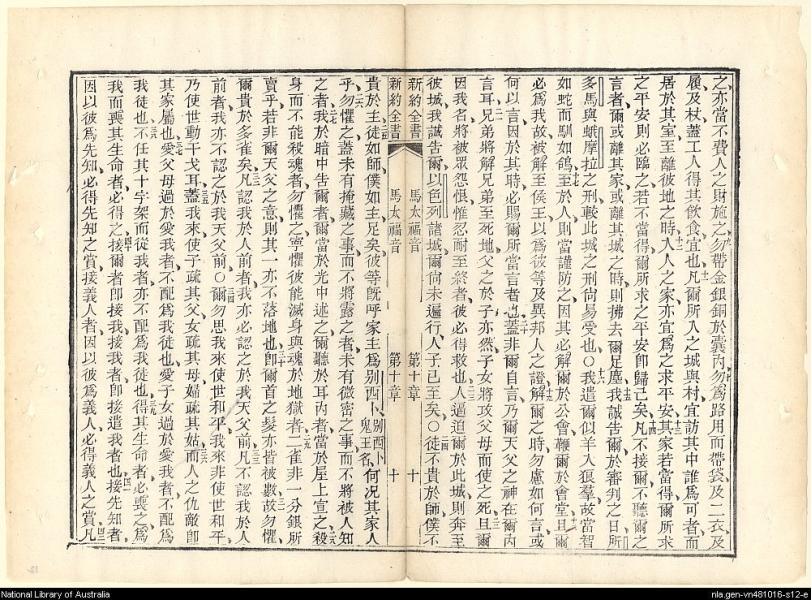 之亦當不費人之財施之勿帶金銀銅於囊內勿爲路用而帶袋及二衣及
履及杖蓋工人得其飲食宜也凡爾所入之城與村宜訪其中誰爲可者而
居於其室至離彼地之時入人之家亦宜爲之求平安其家若當得爾所求
之平安則必臨之若不當得爾所求之平安即歸己矣凡不接爾不聽爾之
言者爾或離其家或離其城之時則拂去爾足塵我誠告爾於審判之日所
多馬與蛾摩拉之刑較此城之刑尙易受也○我遣爾似羊入狼羣故當智
如蛇而馴如鴿至於人則當謹防之因其必解爾於公會鞭爾於會堂且爾
必爲我故被解至侯王以爲彼等及異邦人之證解爾之時勿慮如何言或
何以言因於其時必賜爾所當言者也蓋非爾自言乃爾天父之神在爾內
言耳兄弟將解兄弟至死地父之於子亦然子女將攻父母而使之死且爾
因我名將被眾怨恨惟忍耐至終者彼必得救也人逼迫爾於此城則奔至
彼城我誠告爾以色列諸城爾尙未遍行人子已至矣○徒不貴於師僕不
新約全書 馬太福音 第十章 十
新約全書 馬太福音 第十章 十
貴於主徒如師僕如主足矣彼等旣呼家主爲別西卜別西卜鬼王名何况其家人
乎勿懼之蓋未有掩藏之事而不將露之者未有微密之事而不將被人知
之者我於暗中告爾者爾當於光中述之爾聽於耳內者當於屋上宣之殺
身而不能殺魂者勿懼之寧懼彼能滅身與魂於地獄者二雀非一分銀所
賣乎若非爾天父之意則其一亦不落地也即爾首之髮亦皆被數故勿懼
爾貴於多雀矣凡認我於人前者我亦必認之於我天父前凡不認我於人
前者我亦不認之於我天父前○爾勿思我來使世和平我來非使世和平
乃使世動干戈耳蓋我來使子疏其父女疏其母媳疏其姑而人之仇敵即
其家屬也愛父母過於愛我者不配爲我徒也愛子女過於愛我者不配爲
我徒也不任其十字架而從我者亦不配爲我徒也得其生命者必喪之爲
我而喪其生命者必得之接爾者即接我接我者即接遣我者也接先知者
因以彼爲先知必得先知之賞接義人者因以彼爲義人必得義人之賞凡
National Library of Australia
nla.gen-vn481016-s12-e